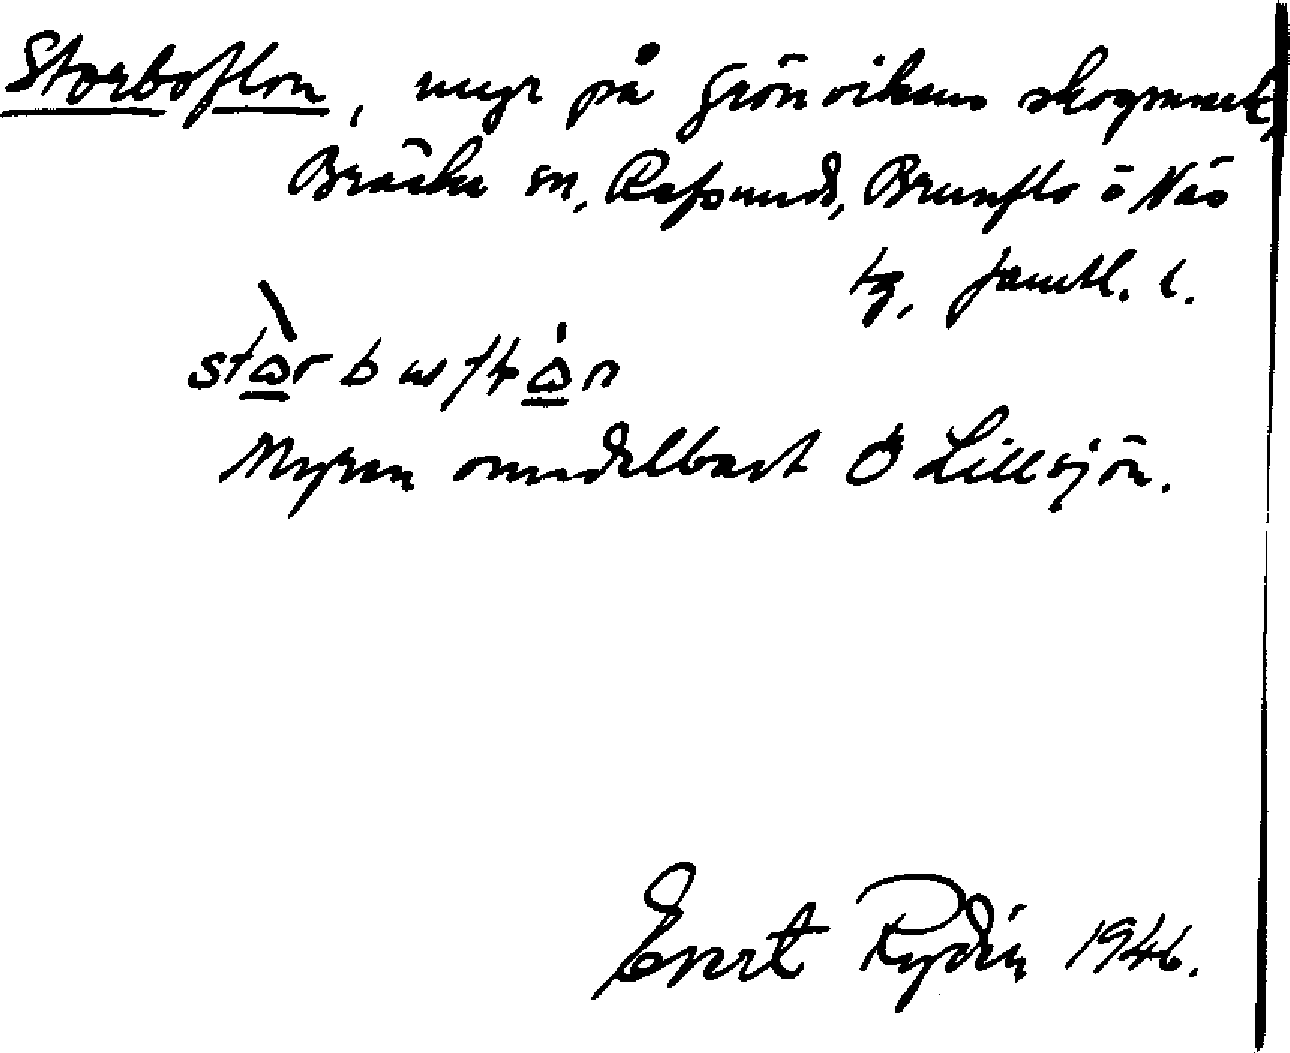 Storboflon, myr på Grönvikens skogsmark,
Bräcke sn, Refsunds, Brunflo o Näs
tg, Jämtl. l.
Myren omedelbart Ö Lillsjön.
Evert Rydin 1946.